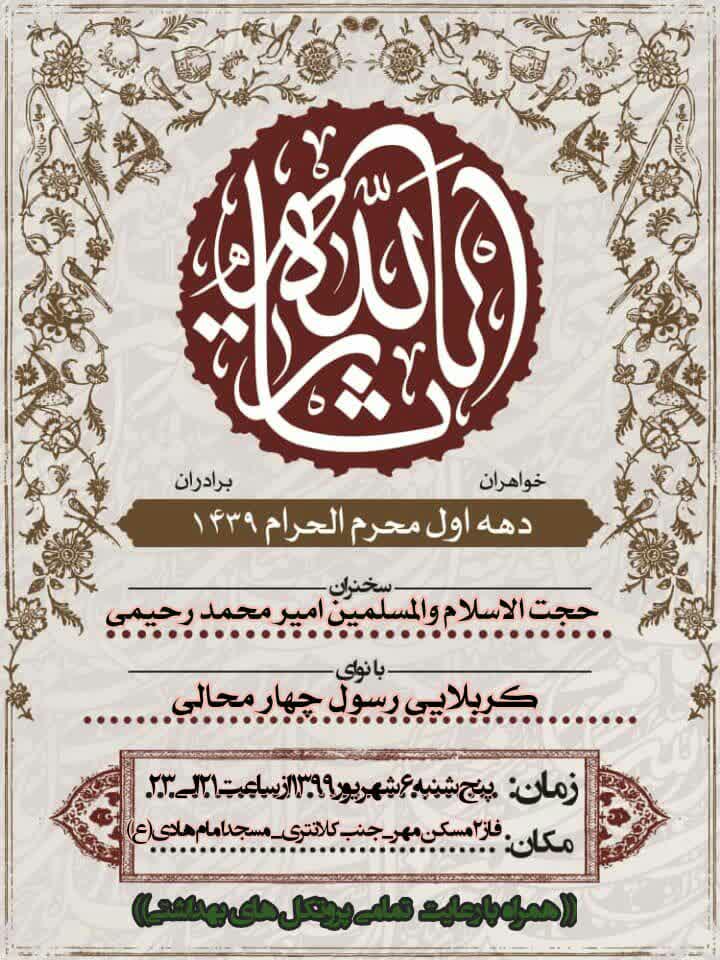 یا ثارالله
خواهران
برادران
دهه اول محرم الحرام ۱۴۳۹
سخنران
حجت الاسلام والمسلمین امیر محمد رحیمی
با نوای
کربلایی رسول چهار محالی
زمان: پنج شنبه ۶ شهریور ۱۳۹۹ از ساعت ۲۱ الی ۲۳
مکان: فاز ۲ مسکن مهر_ جنب کلانتری_ مسجد امام هادی (ع)
(( همراه با رعایت تمامی پروتکل های بهداشتی))